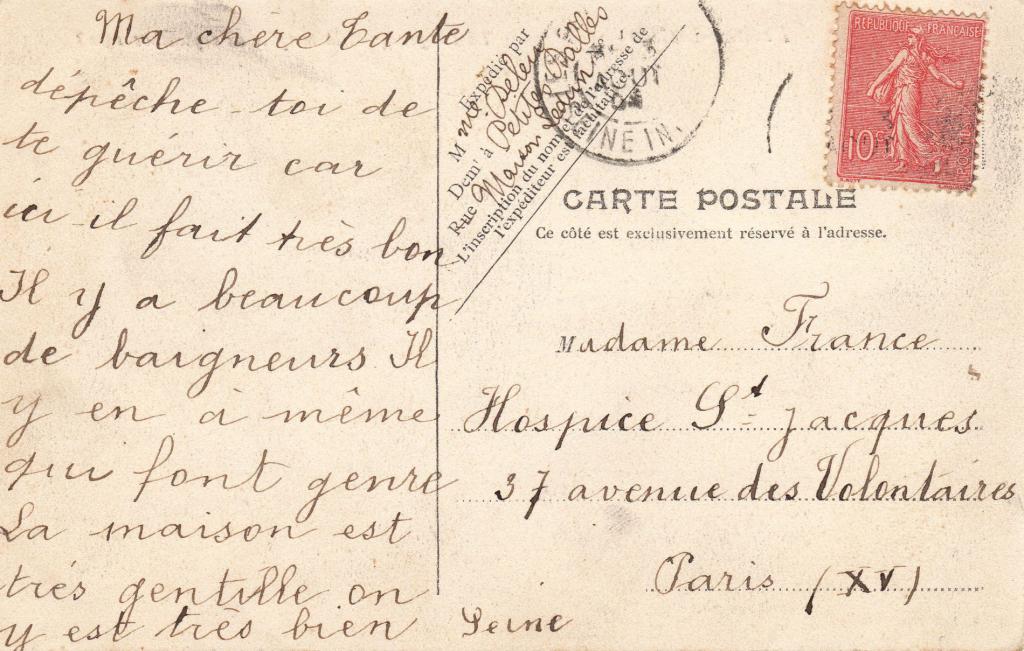 Ma chère Tante
dépêche-toi de
te guérir car
ici il fait très bon
Il y a beaucoup
de baigneurs Il
y en a même
qui font genre
La maison est
très gentille on
y est très bien
Expédié par
M
Demt à Petites Dalles
Rue Maison
L'inscription du nom et de l'adresse de
l'expéditeur est facultative.
NE IN.
REPUBLIQUE FRANÇAISE
10c
POSTES
CARTE POSTALE
Ce côté est exclusivement réservé à l'adresse.
Madame France
Hospice St Jacques
37 avenue des Volontaires
Paris (XV)
Seine